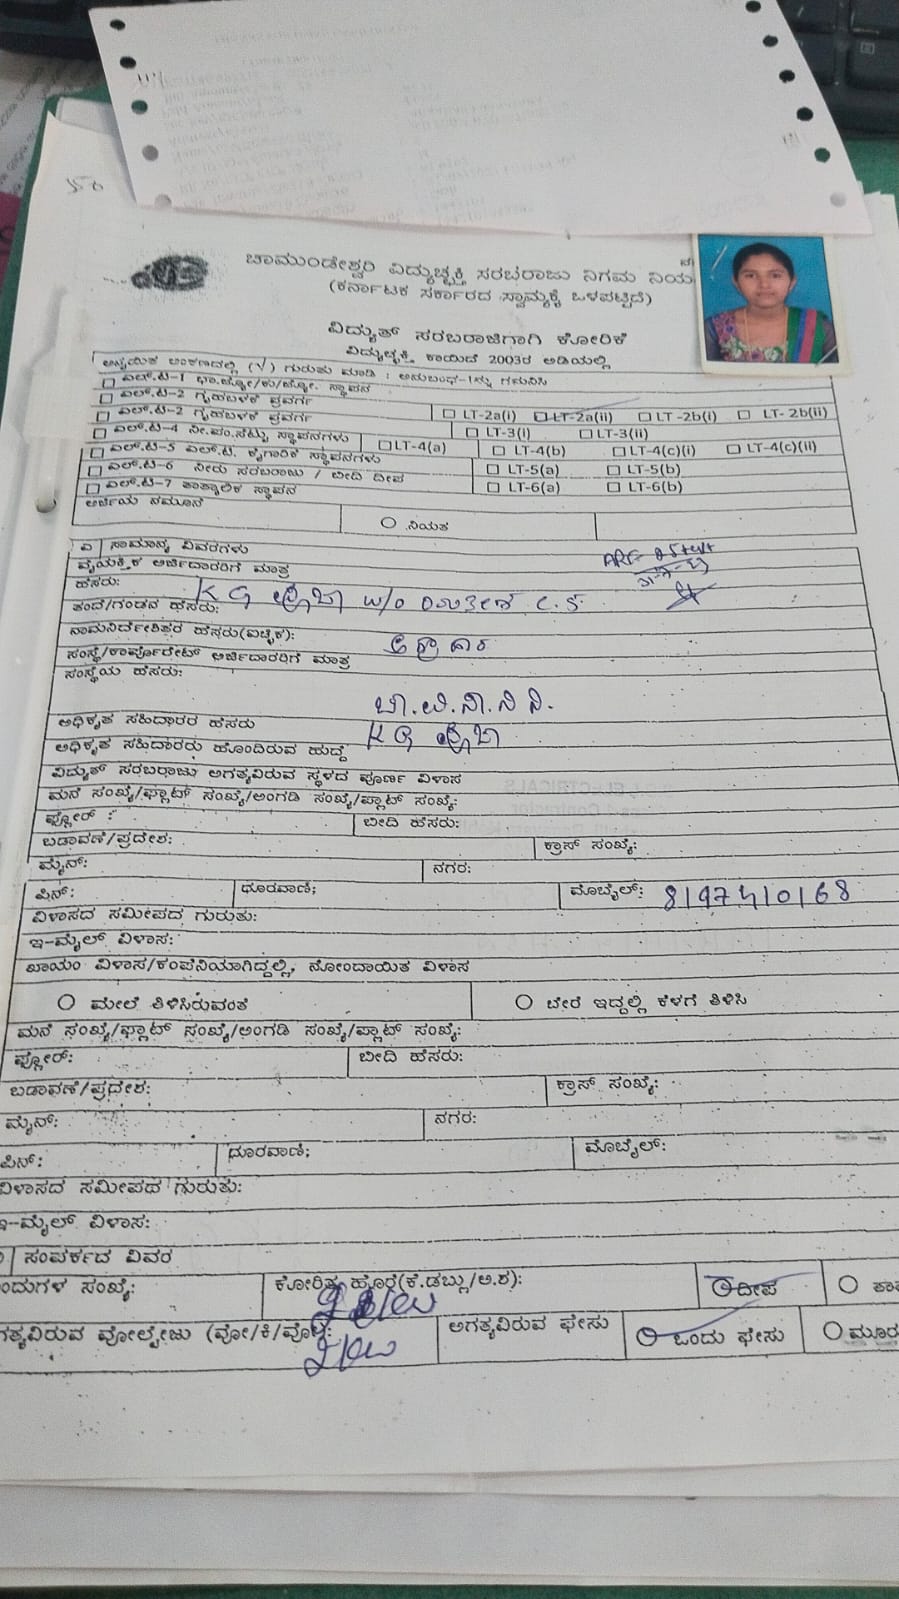 ಚಾಮುಂಡೇಶ್ವರಿ ವಿದ್ಯುಚ್ಛಕ್ತಿ ಸರಬರಾಜು ನಿಗಮ ನಿಯ
(ಕರ್ನಾಟಕ ಸರ್ಕಾರದ ಸ್ವಾಮ್ಯಕ್ಕೆ ಒಳಪಟ್ಟಿದೆ)
ವಿದ್ಯುತ್ ಸರಬರಾಜಿಗಾಗಿ ಕೋರಿಕೆ
ವಿದ್ಯುಚ್ಛಕ್ತಿ ಕಾಯಿದೆ 2003ರ ಅಡಿಯಲ್ಲಿ
ಅನ್ವಯಿತ ಅಂಕಣದಲ್ಲಿ (√) ಗುರುತು ಮಾಡಿ : ಅನುಬಂಧ-1ನ್ನು ಗಮನಿಸಿ
ಎಲ್.ಟಿ-1 ಭಾ.ಜ್ಯೋ/ಕು/ಜ್ಯೋ. ಸ್ಥಾಪನ
ಎಲ್.ಟಿ-2 ಗೃಹಬಳಕೆ ಪ್ರವರ್ಗ
ಎಲ್.ಟಿ-2 ಗೃಹಬಳಕೆ ಪ್ರವರ್ಗ LT-2a(i) LT-2a(ii) LT-2b(i) LT- 2b(ii)
ಎಲ್.ಟಿ-4 ನೀ.ಪಂ.ಸೆಟ್ಟು ಸ್ಥಾಪನಗಳು LT-3(i) LT-3(ii)
ಎಲ್.ಟಿ-5 ಎಲ್.ಟಿ. ಕೈಗಾರಿಕೆ ಸ್ಥಾಪನಗಳು LT-4(a) LT-4(b) LT-4(c)(i) LT-4(c)(ii)
ಎಲ್.ಟಿ-6 ನೀರು ಸರಬರಾಜು / ಬೀದಿ ದೀಪ LT-5(a) LT-5(b)
ಎಲ್.ಟಿ-7 ತಾತ್ಕಾಲಿಕ ಸ್ಥಾಪನ LT-6(a) LT-6(b)
ಅರ್ಜಿಯ ನಮೂನೆ
ನಿಯತ
ಎ ಸಾಮಾನ್ಯ ವಿವರಗಳು
ವೈಯಕ್ತಿಕ ಅರ್ಜಿದಾರರಿಗೆ ಮಾತ್ರ
ಹೆಸರು: K G W/o C. S.
ತಂದೆ/ಗಂಡನ ಹೆಸರು:
ನಾಮನಿರ್ದೇಶಿತರ ಹೆಸರು(ಐಚ್ಛಿಕ):
ಸಂಸ್ಥೆ/ಕಾರ್ಪೊರೇಟ್ ಅರ್ಜಿದಾರರಿಗೆ ಮಾತ್ರ
ಸಂಸ್ಥೆಯ ಹೆಸರು:
ಅಧಿಕೃತ ಸಹಿದಾರರ ಹೆಸರು K G
ಅಧಿಕೃತ ಸಹಿದಾರರು ಹೊಂದಿರುವ ಹುದ್ದೆ
ವಿದ್ಯುತ್ ಸರಬರಾಜು ಅಗತ್ಯವಿರುವ ಸ್ಥಳದ ಪೂರ್ಣ ವಿಳಾಸ
ಮನೆ ಸಂಖ್ಯೆ/ಫ್ಲಾಟ್ ಸಂಖ್ಯೆ/ಅಂಗಡಿ ಸಂಖ್ಯೆ/ಪ್ಲಾಟ್ ಸಂಖ್ಯೆ:
ಫ್ಲೋರ್ : ಬೀದಿ ಹೆಸರು:
ಬಡಾವಣೆ/ಪ್ರದೇಶ: ಕ್ರಾಸ್ ಸಂಖ್ಯೆ:
ಮೈನ್: ನಗರ:
ಪಿನ್: ಧೂರವಾಣಿ; ಮೊಬೈಲ್:
ವಿಳಾಸದ ಸಮೀಪದ ಗುರುತು:
ಇ-ಮೈಲ್ ವಿಳಾಸ:
ಖಾಯಂ ವಿಳಾಸ/ಕಂಪೆನಿಯಾಗಿದ್ದಲ್ಲಿ, ನೋಂದಾಯಿತ ವಿಳಾಸ
ಮೇಲೆ ತಿಳಿಸಿರುವಂತೆ ಬೇರೆ ಇದ್ದಲ್ಲಿ ಕೆಳಗೆ ತಿಳಿಸಿ
ಮನೆ ಸಂಖ್ಯೆ/ಫ್ಲಾಟ್ ಸಂಖ್ಯೆ/ಅಂಗಡಿ ಸಂಖ್ಯೆ/ಪ್ಲಾಟ್ ಸಂಖ್ಯೆ:
ಫ್ಲೋರ್: ಬೀದಿ ಹೆಸರು:
ಬಡಾವಣೆ/ಪ್ರದೇಶ: ಕ್ರಾಸ್ ಸಂಖ್ಯೆ:
ಮೈನ್: ನಗರ:
ಪಿನ್: ಧೂರವಾಣಿ; ಮೊಬೈಲ್:
ವಿಳಾಸದ ಸಮೀಪದ ಗುರುತು:
ಇ-ಮೈಲ್ ವಿಳಾಸ:
ಸಂಪರ್ಕದ ವಿವರ
ಂದುಗಳ ಸಂಖ್ಯೆ: ಕೋರಿಕ್ತ ಹೊರೆ(ಕೆ.ಡಬ್ಲು/ಅ.ಶ): ದೀಪ
ಗತ್ಯವಿರುವ ವೋಲ್ಟೇಜು (ವೋ/ಕಿ/ವೊ): 2 kw ಅಗತ್ಯವಿರುವ ಫೇಸು ಒಂದು ಫೇಸು ಮೂರ